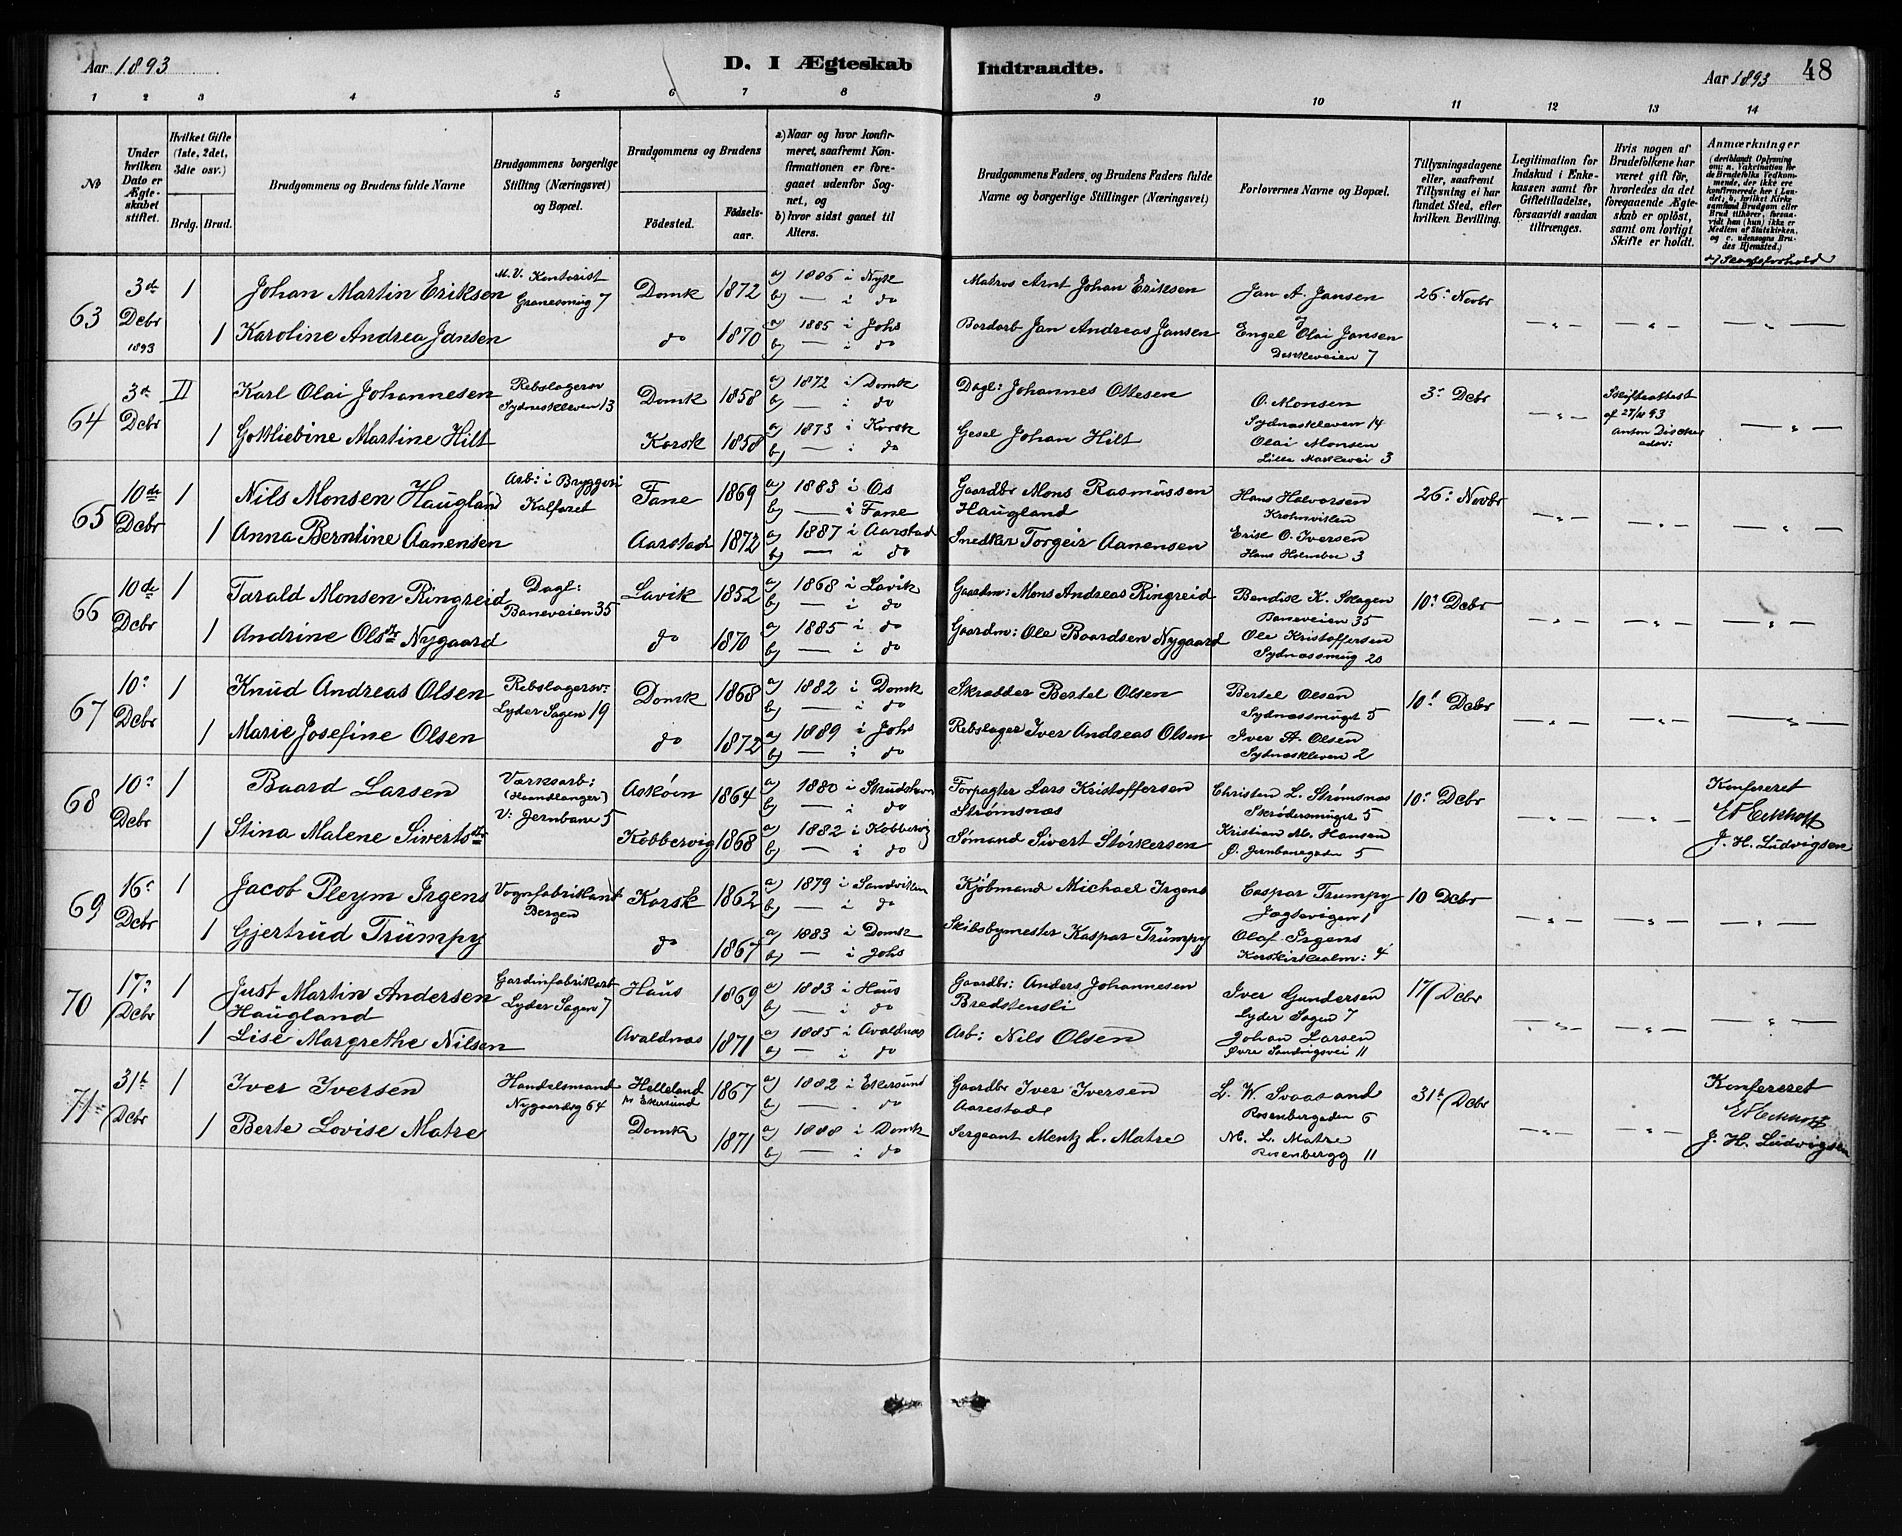 Aar 1893
D. I Ægteskab Indtraadte.
Aar 1893
48
1 2 3 4 5 6 7 8 9 10 11 12 13 14
No
Under hvilken Dato er Ægteskabet stiftet.
Hvilket Gifte (1ste, 2det, 3die osv.)
Brdg. Brud.
Brudgommens og Brudens fulde Navne
Brudgommens borgerlige Stilling (Næringsvei) og Bopæl.
Brudgommens og Brudens
Fødested. Fødselsaar.
a) Naar og hvor konfirmeret, saafremt Konfirmationen er foregaaet udenfor Sognet, og
b) hvor sidst gaaet til Alters.
Brudgommens Faders og Brudens Faders fulde Navne og borgerlige Stillinger (Næringsvei)
Forlovernes Navne og Bopæl.
Tillysningsdagene eller, saafremt Tillysning ei har fundet Sted, efter hvilken Bevilling.
Legitimation for Indskud i Enkekassen samt for Giftetilladelse, forsaavidt saadan tiltrænges.
Hvis nogen af Brudefolkene har været gift før, hvorledes da det foregaaende Ægteskab er opløst, samt om lovligt Skifte er holdt.
Anmærkninger (deriblandt Oplysning om: a. Vakcination for de Brudefolks Vedkommende, der ikke ere konfirmerede her i Landet; b. hvilket Kirkesamfund Brudgom eller Brud tilhører, forsaavidt han (hun) ikke er Medlem af Statskirken, og c. udensogns Brudes Hjemsted.
63 3de Dcbr 1893 1 Johan Martin Eriksen M.V. Kontorist Granesmug 7 Domk 1872 a) 1886 i Nyk b) — i do Matros Arnt Johan Eriksen Jan A. Jansen 26: Novbr
1 Karoline Andrea Jansen do 1870 a) 1885 i Johs b) — i do Bordarb Jan Andreas Jansen Engel Olai Jansen 7
64 3de Dcbr II Karl Olai Johannesen Rebslagersv Sydneskleven 13 Domk 1858 a) 1872 i Domk b) — i do Dagl: Johannes Ottesen O. Monsen Sydneskleven 14 3: Dcbr Skifteattest af 27/11 93 Anton
1 Gottliebine Martine Hilt Korsk 1858 a) 1873 i Korsk b) — i do Gesel Johan Hilt Olai Monsen Lille Markevei 3
65 10de Dcbr 1 Nils Monsen Haugland Arb: i Bryggeri Kalfaret Fane 1869 a) 1883 i Os b) — i Fane Gaardbr Mons Rasmussen Haugland Hans Halvorsen Krohnviken 26: Novbr
1 Anna Berntine Aanensen Aarstad 1872 a) 1887 i Aarstad b) — i do Snedker Torgeir Aanensen Erik O. Iversen Hans Holmboe 3
66 10de Dcbr 1 Tarald Monsen Ringreid Dagl: Baneveien 35 Lavik 1852 a) 1868 i Lavik b) — i do Gaardm: Mons Andreas Ringreid Bendik K. Skagen Baneveien 35 10: Dcbr
1 Andrine Olsdtr Nygaard do 1870 a) 1885 i do b) — i do Gaardm: Ole Baardsen Nygaard Ole Kristoffersen Sydnessmug 20
67 10: Dcbr 1 Knud Andreas Olsen Rebslagersv: Lyder Sagen 19 Domk 1868 a) 1882 i Domk b) — i do Skrædder Bertel Olsen Bertel Olsen Sydnessmuget 5 10: Dcbr
1 Marie Josefine Olsen do 1872 a) 1889 i Johs b) — i do Rebslager Iver Andreas Olsen Iver A. Olsen Sydneskleven 2
68 10: Dcbr 1 Baard Larsen Værksarb: (Haandlanger) V: Jernbane 5 Askøen 1864 a) 1880 i b) — i do Forpagter Lars Kristoffersen Strømsnæs Christen L. Strømsnæs Skrødersmuget 5 10: Dcbr Konfereret
1 Stina Malene Sivertsdtr Kobbervig 1868 a) 1882 i Kobbervig b) — i do Sømand Sivert Størkersen Kristian M. Hansen Ø. Jernbanegaden 5 J. H. Ludvigsen
69 16: Dcbr 1 Jacob Pleym Irgens Vognfabrikant Bergen Korsk 1862 a) 1879 i Sandviken b) — i do Kjøbmand Michael Irgens Caspar Trumpy Jægtevigen 1 10 Dcbr
1 Gjertrud Trümpy do 1867 a) 1883 i Domk b) — i Johs Skibsbymester Kaspar Trümpy Olaf Irgens Korskirkealm: 4
70 17: Dcbr 1 Just Martin Andersen Haugland Gardinfabrikarb Lyder Sagen 7 Haus 1869 a) 1883 i Haus b) — i do Gaardbr: Anders Johannesen Bredstensli Iver Gundersen Lyder Sagen 7 17/ Dcbr
1 Lise Margrethe Nilsen Avaldnæs 1871 a) 1885 i Avaldnæs a) — i do Arb: Nils Olsen Johan Larsen Øvre Sandvigsvei 11
71 31te Dcbr 1 Iver Iversen Handelsmand Nygaardsg 64 Helleland pr Ekersund 1867 a) 1882 i Ekersund b) — . do Gaardbr Iver Iversen Aarestad L. W. Svaasand Rosenbergaden 6 31te/ Dcbr Konfereret
1 Berte Lovise Matre Domk 1871 a) 1888 i Domk b) — i do Sergeant Mentz L. Matre M. L. Matre Rosenbergg 11 J. H. Ludvigsen